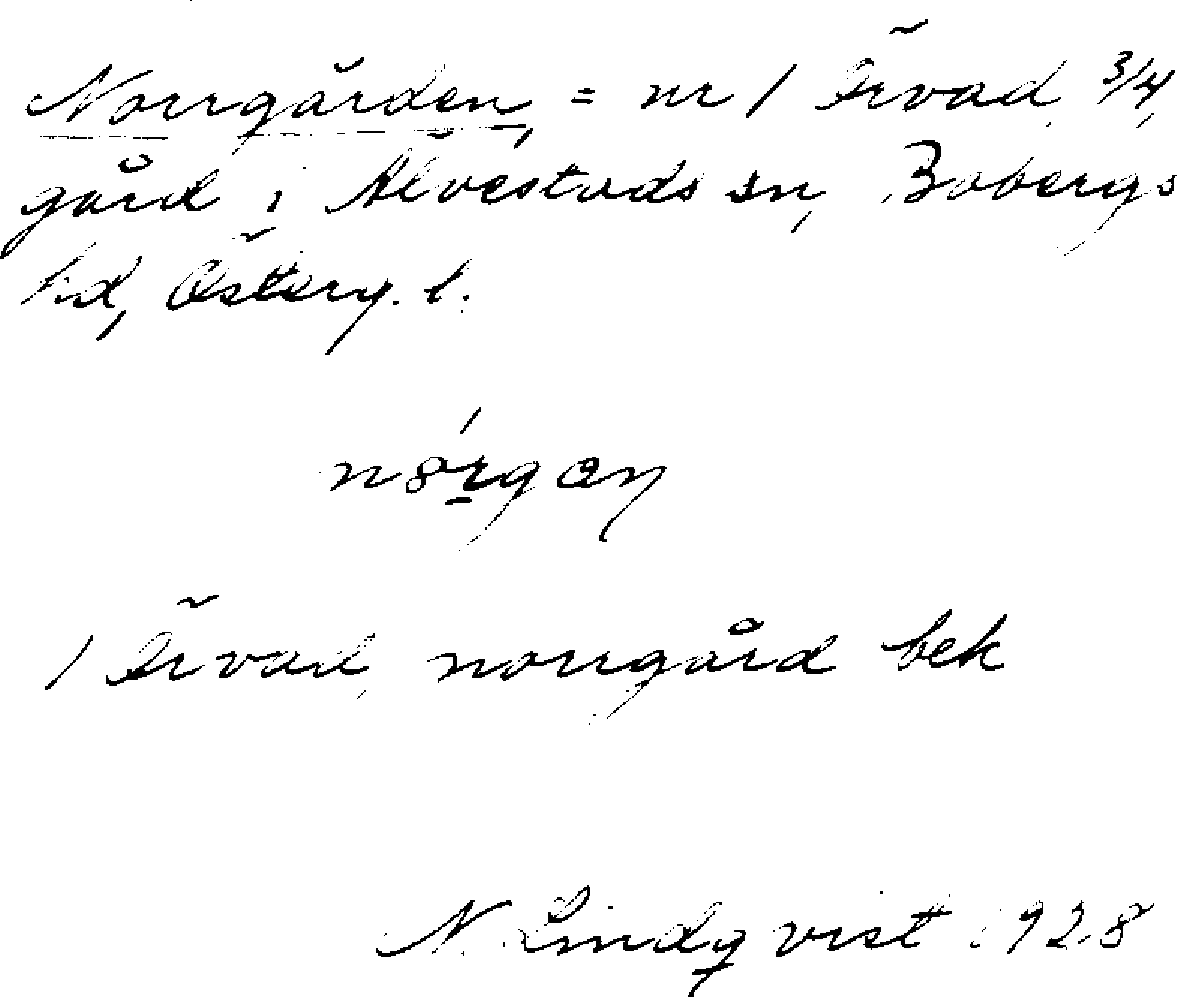 Norrgården, = nr 1 Örvad, 3/4,
gård i Älvestads sn, Bobergs
hd, Österg. l.
1 Örvad, norrgård bek
N. Lindqvist 1928